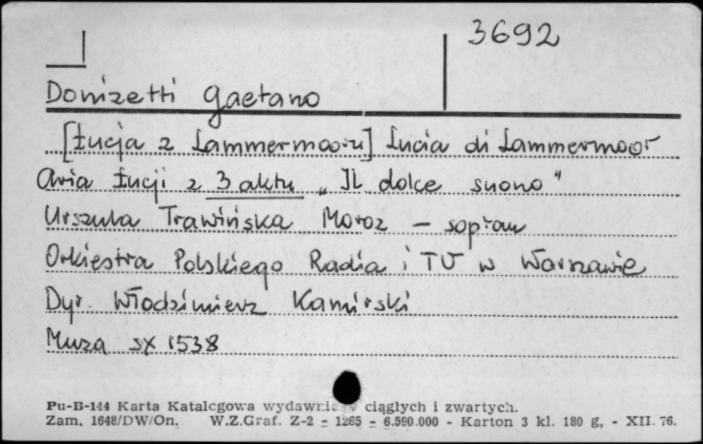 3692
Donizetti Gaetano
[Łucja z Lammermooru] Lucia di Lammermoor
Aria Łucji z 3 aktu „Il dolce suono"
Urszula Trawińska Moroz – sopran
Orkiestra Polskiego Radia i TV w Warszawie
Dyr. Włodzimierz Kamirski
Muza SX 1538
Pu-B-144 Karta Katalogowa wydawnictw ciągłych i zwartych.
Zam. 1648/DW/On. W.Z.Graf. Z-2 - 1265 - 6.590.000 - Karton 3 kl. 180 g, - XII. 76.